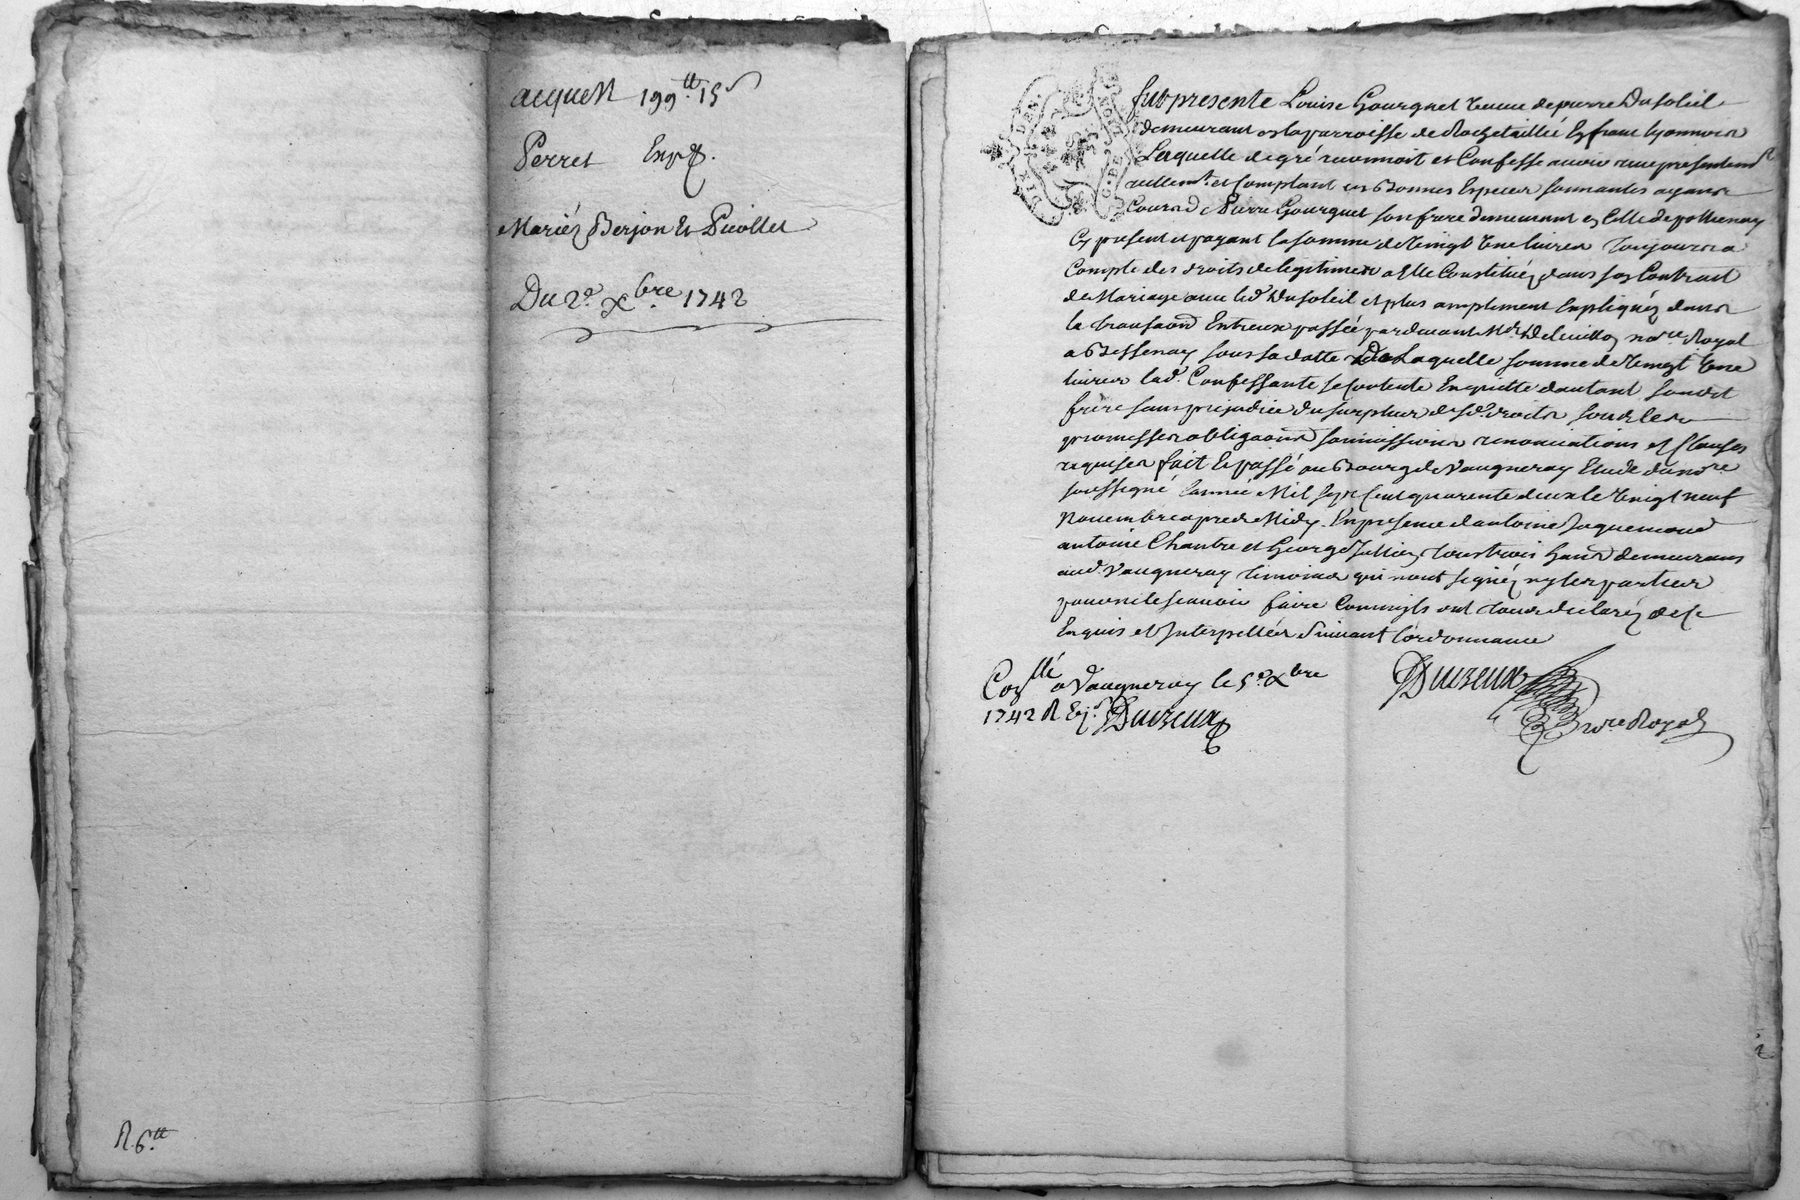 acquem 199.tt 15s
Perret Exp.
Mariéz Berjon Et Piollet
Du 2e. Xbre. 1742
R. 6.tt
DIX DEN.
G. DE LYON
fut presente Louise Gourguet veuue de pierre Dusoleil
demeurant en la parroisse de Rochetaillié En franc lyonnois
Laquelle de gré reconnoit et Confesse auoir reçu presentemt
reellemt. et Comptant en Bonnes Especes sonnantes ayant
Cours d Pierre Gourguet son frere demeurant en Celle de pollienay
Cy present et payant la somme de Vingt Une liures toujours a
Compte des droits de legitimes a Elle Constituéz dans son Contrast
de Mariage auec led. Dusoleil et plus amplement Expliquéz dans
la transaon Entreux passée pardeuant Me notre Royal
a Bessenay sous sa datte De Laquelle somme de Vingt Une
liures lad. Confessante se Contente En quitte d'autant sondt
frere sans prejudice du surplus de sd. droits sous les
promesses obligaons soumissions renonciations et Clauses
requises fait Et passé au Bourg de Vaugneray Etude du nore
soussigné l'année Mil sept Cent quarente deux le Vingt neuf
Nouembre apres Midy. En presence d'antoine Jaquemond
antoine Chantre et George Jullien tous trois demeurans
aud. Vaugneray temoins qui n'ont signéz ny les parties
pour ne le scauoir faire Comm'ils ont tous declaréz de ce
Enquis et Interpellés Suiuant l'ordonnance
Conllé a Vaugneray le 5e. Xbre
1742 R Duzeux
Duzeux
nore. Royal